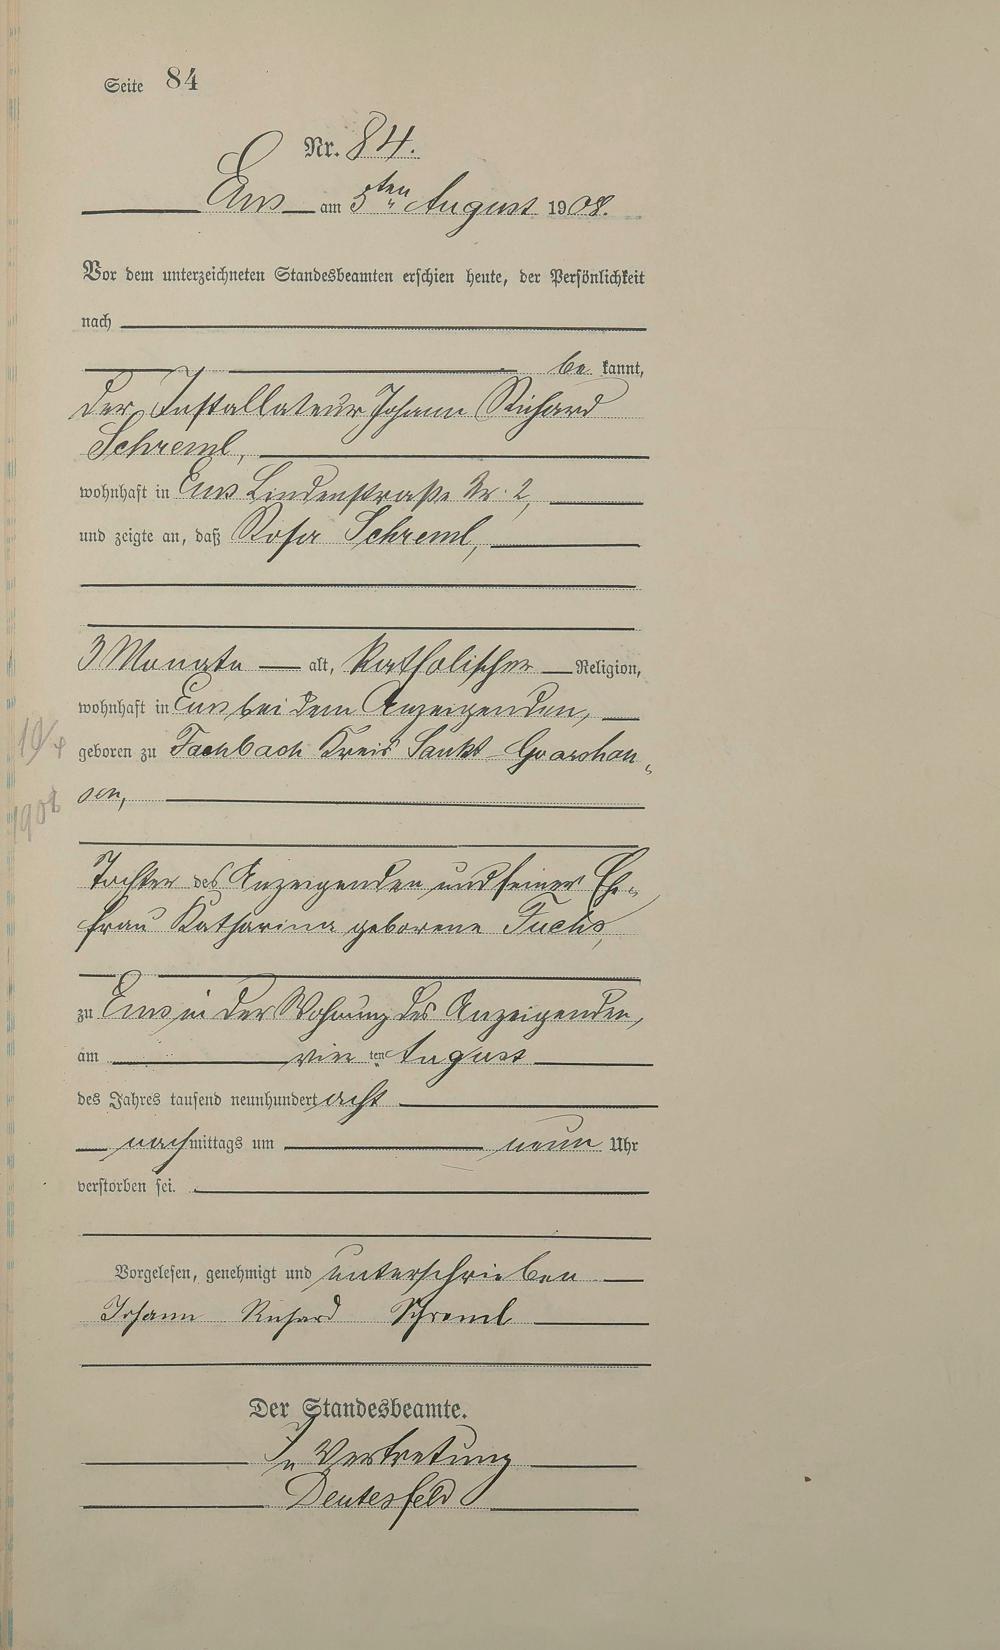 Seite 84
Nr. 84.
Ems am 5ten August 1908.
Vor dem unterzeichneten Standesbeamten erschien heute, der Persönlichkeit
nach
be kannt,
der Installateur Johann Richard
Schreml,
wohnhaft in Ems Lindenstraße Nr. 2,
und zeigte an, daß Rosa Schreml,
3 Monate alt, katholischer Religion,
wohnhaft in Ems bei dem Anzeigenden,
geboren zu Fachbach Kreis Sankt Goarshau„
sen,
1908
Tochter des Anzeigenden und seiner Ehe„
frau Katharina geborene Fuchs,
zu Ems in der Wohnung des Anzeigenden,
am vier ten August
des Jahres tausend neunhundert acht
nachmittags um neun Uhr
verstorben sei.
Vorgelesen, genehmigt und unterschrieben
Johann Richard Schreml
Der Standesbeamte.
In Vertretung
Deutesfeld